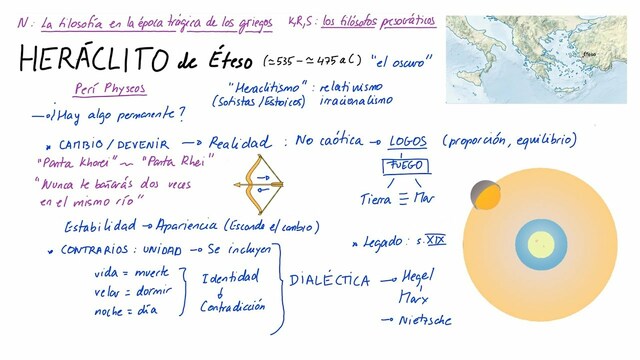 N: La filosofía en la época trágica de los griegos   K,R,S: los filósofos presocráticos
HERÁCLITO de Éfeso (≃535 - ≃475 a C) "el oscuro"
Éfeso
Perí Physeos
"Heraclitismo": relativismo
(Sofistas/Estoicos) irracionalismo
→ ¿Hay algo permanente?
* CAMBIO / DEVENIR → Realidad : No caótica → LOGOS (proporción, equilibrio)
"Panta Khorei" ~ "Panta Rhei"
FUEGO
"Nunca te bañarás dos veces
en el mismo río"
Tierra ≡ Mar
Estabilidad → Apariencia (Esconde el cambio)
* CONTRARIOS: UNIDAD → Se incluyen
* Legado: s. XIX
vida = muerte
velar = dormir
noche = día
Identidad
↓
Contradicción
DIALÉCTICA → Hegel
Marx
→ Nietzsche